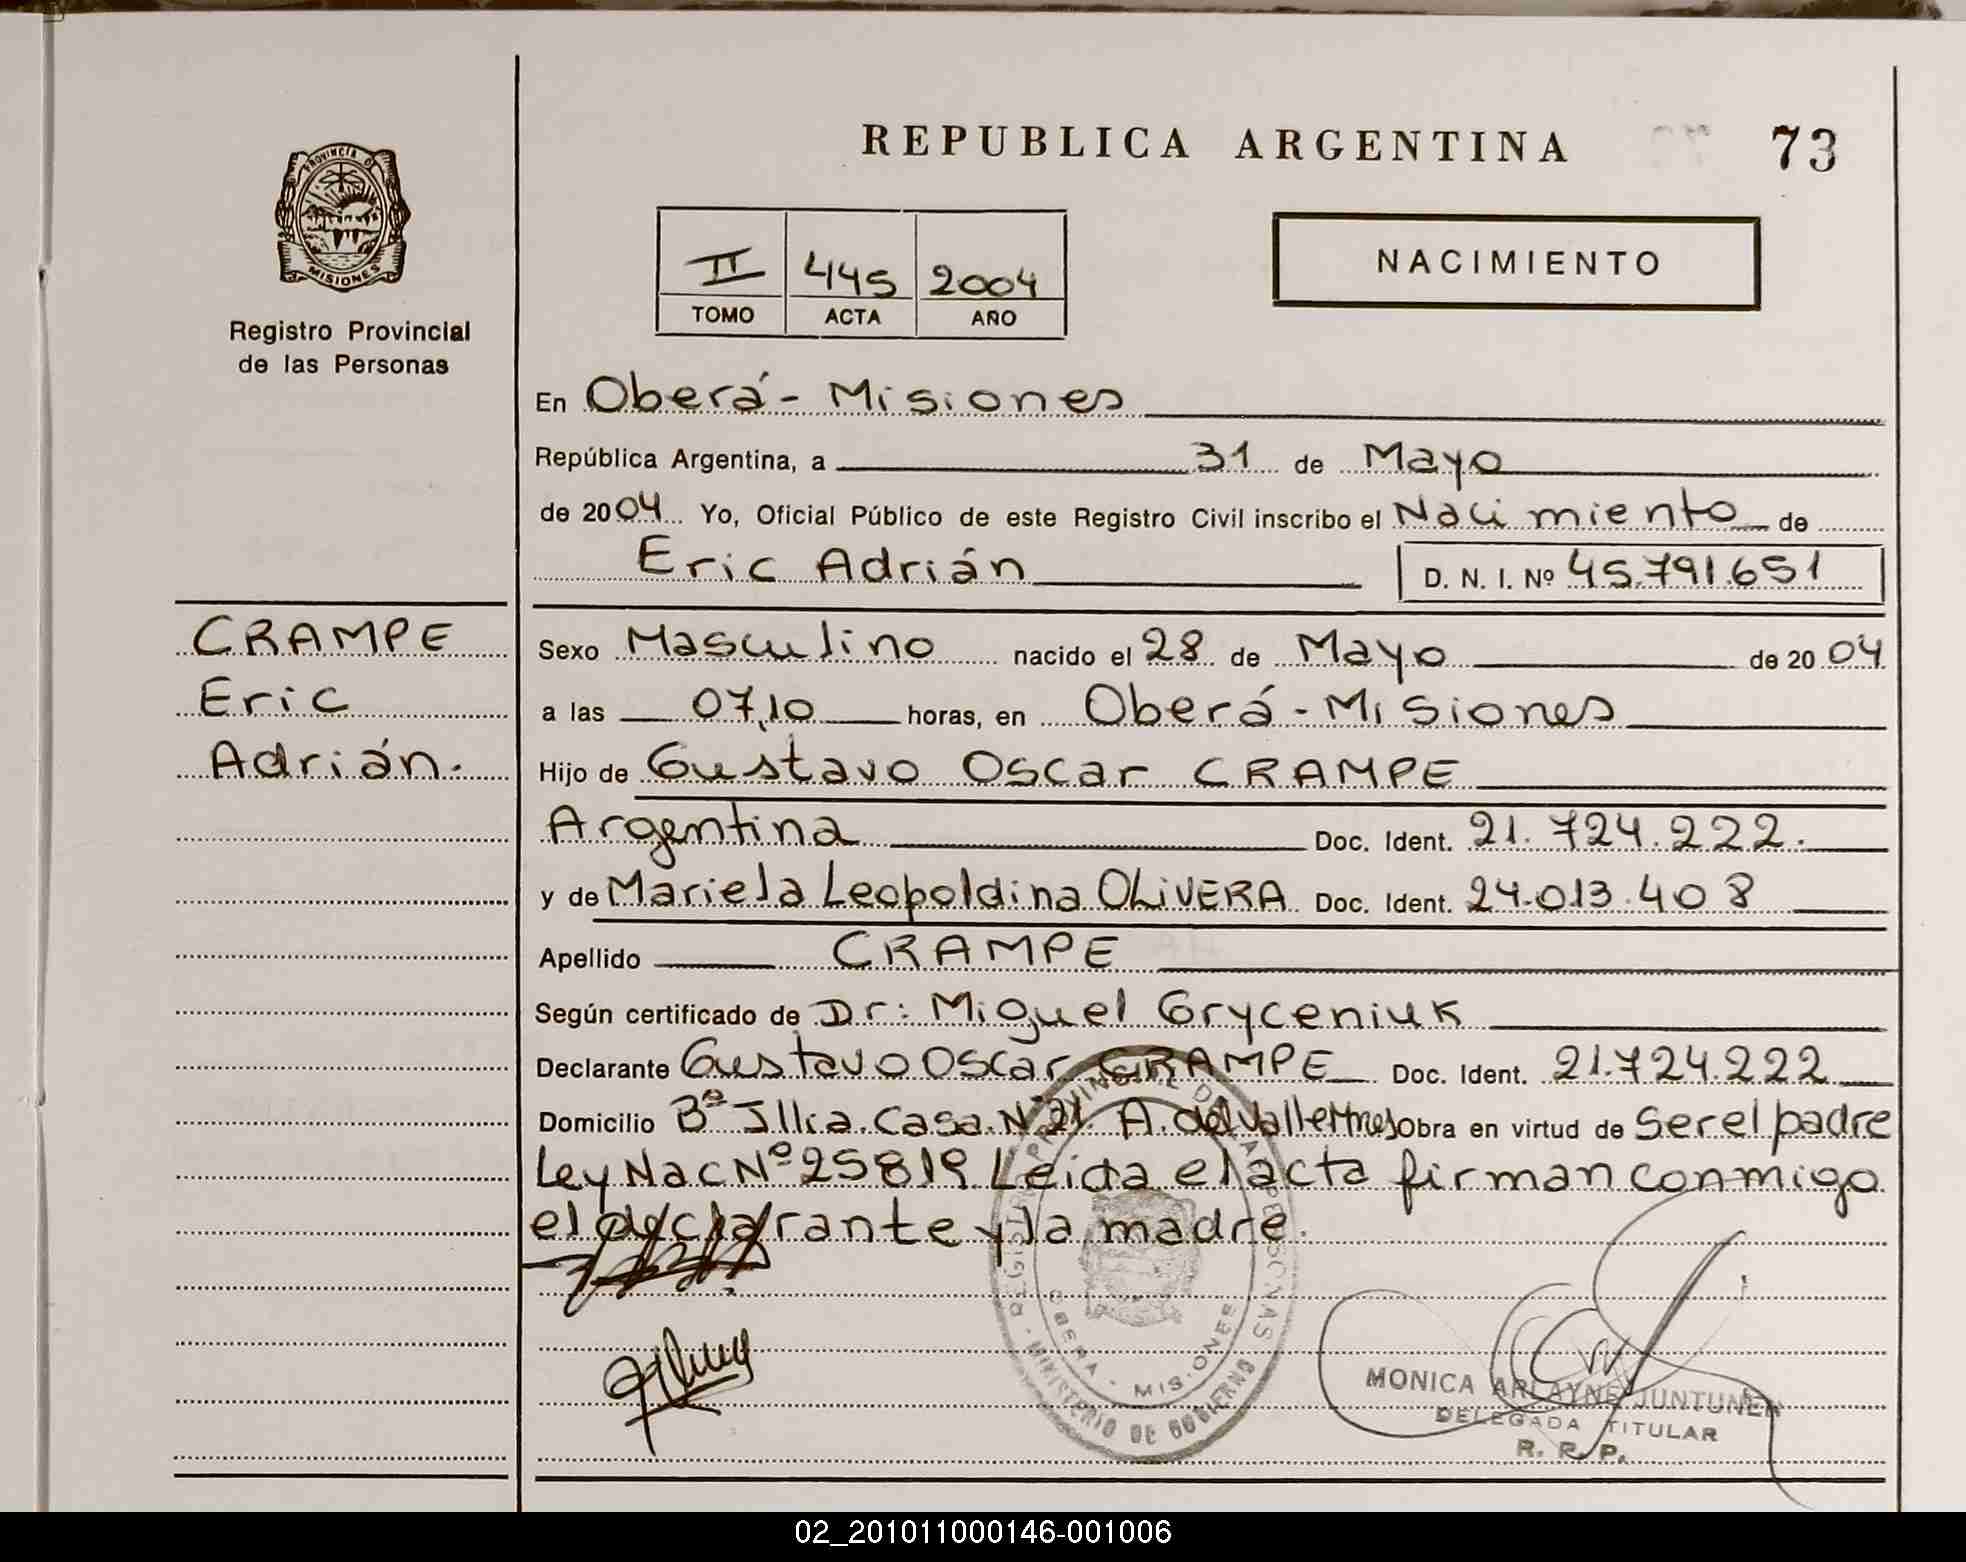 REPUBLICA ARGENTINA
73
PROVINCIA DE
MISIONES
Registro Provincial
de las Personas
II 445 2004
TOMO ACTA AÑO
NACIMIENTO
En Oberá - Misiones
República Argentina, a 31 de Mayo
de 2004 Yo, Oficial Público de este Registro Civil inscribo el Nacimiento de
Eric Adrián D. N. I. Nº 45.791.651
CRAMPE
Eric
Adrián.
Sexo Masculino nacido el 28 de Mayo de 2004
a las 07,10 horas, en Oberá - Misiones
Hijo de Gustavo Oscar CRAMPE
Argentina Doc. Ident. 21.724.222.
y de Mariela Leopoldina OLIVERA Doc. Ident. 24.013.408
Apellido CRAMPE
Según certificado de Dr: Miguel Gryceniuk
Declarante Gustavo Oscar CRAMPE Doc. Ident. 21.724.222
Domicilio Bº Illia Casa Nº 21. A. del Valle Mnes Obra en virtud de Ser el padre
Ley Nac Nº 25819 Leida el acta firman conmigo
el declarante y la madre.
REGISTRO PROVINCIAL DE LAS PERSONAS
OBERA - MISIONES
MINISTERIO DE GOBIERNO
MONICA ARLAYNE JUNTUNEN
DELEGADA TITULAR
R. R. P.
02_201011000146-001006